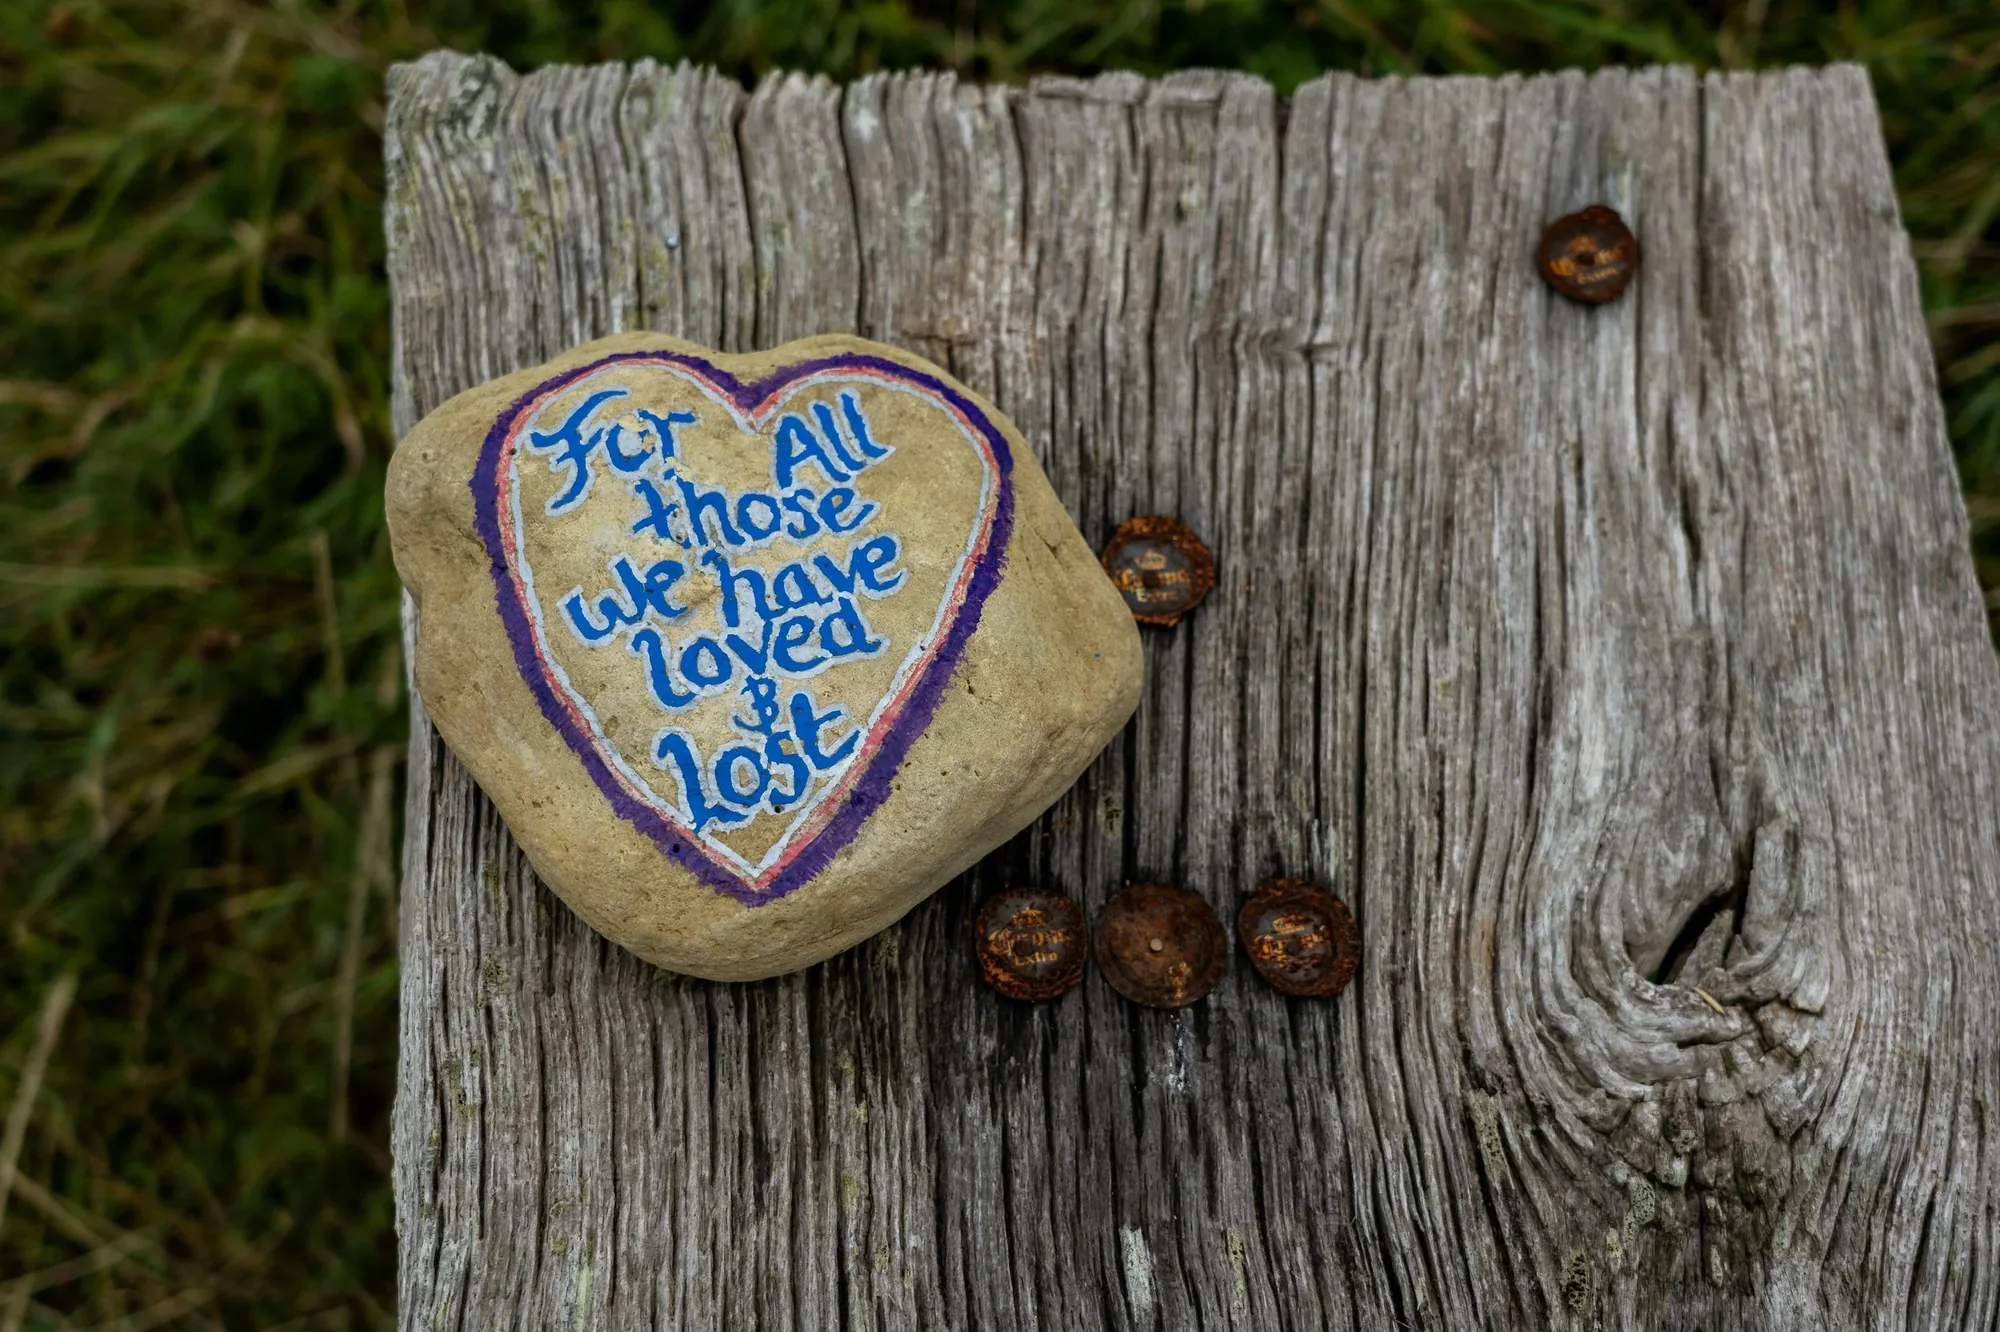 For All
those
we have
loved
&
Lost
Corona
Extra
Corona
Extra
Corona
Extra
Corona